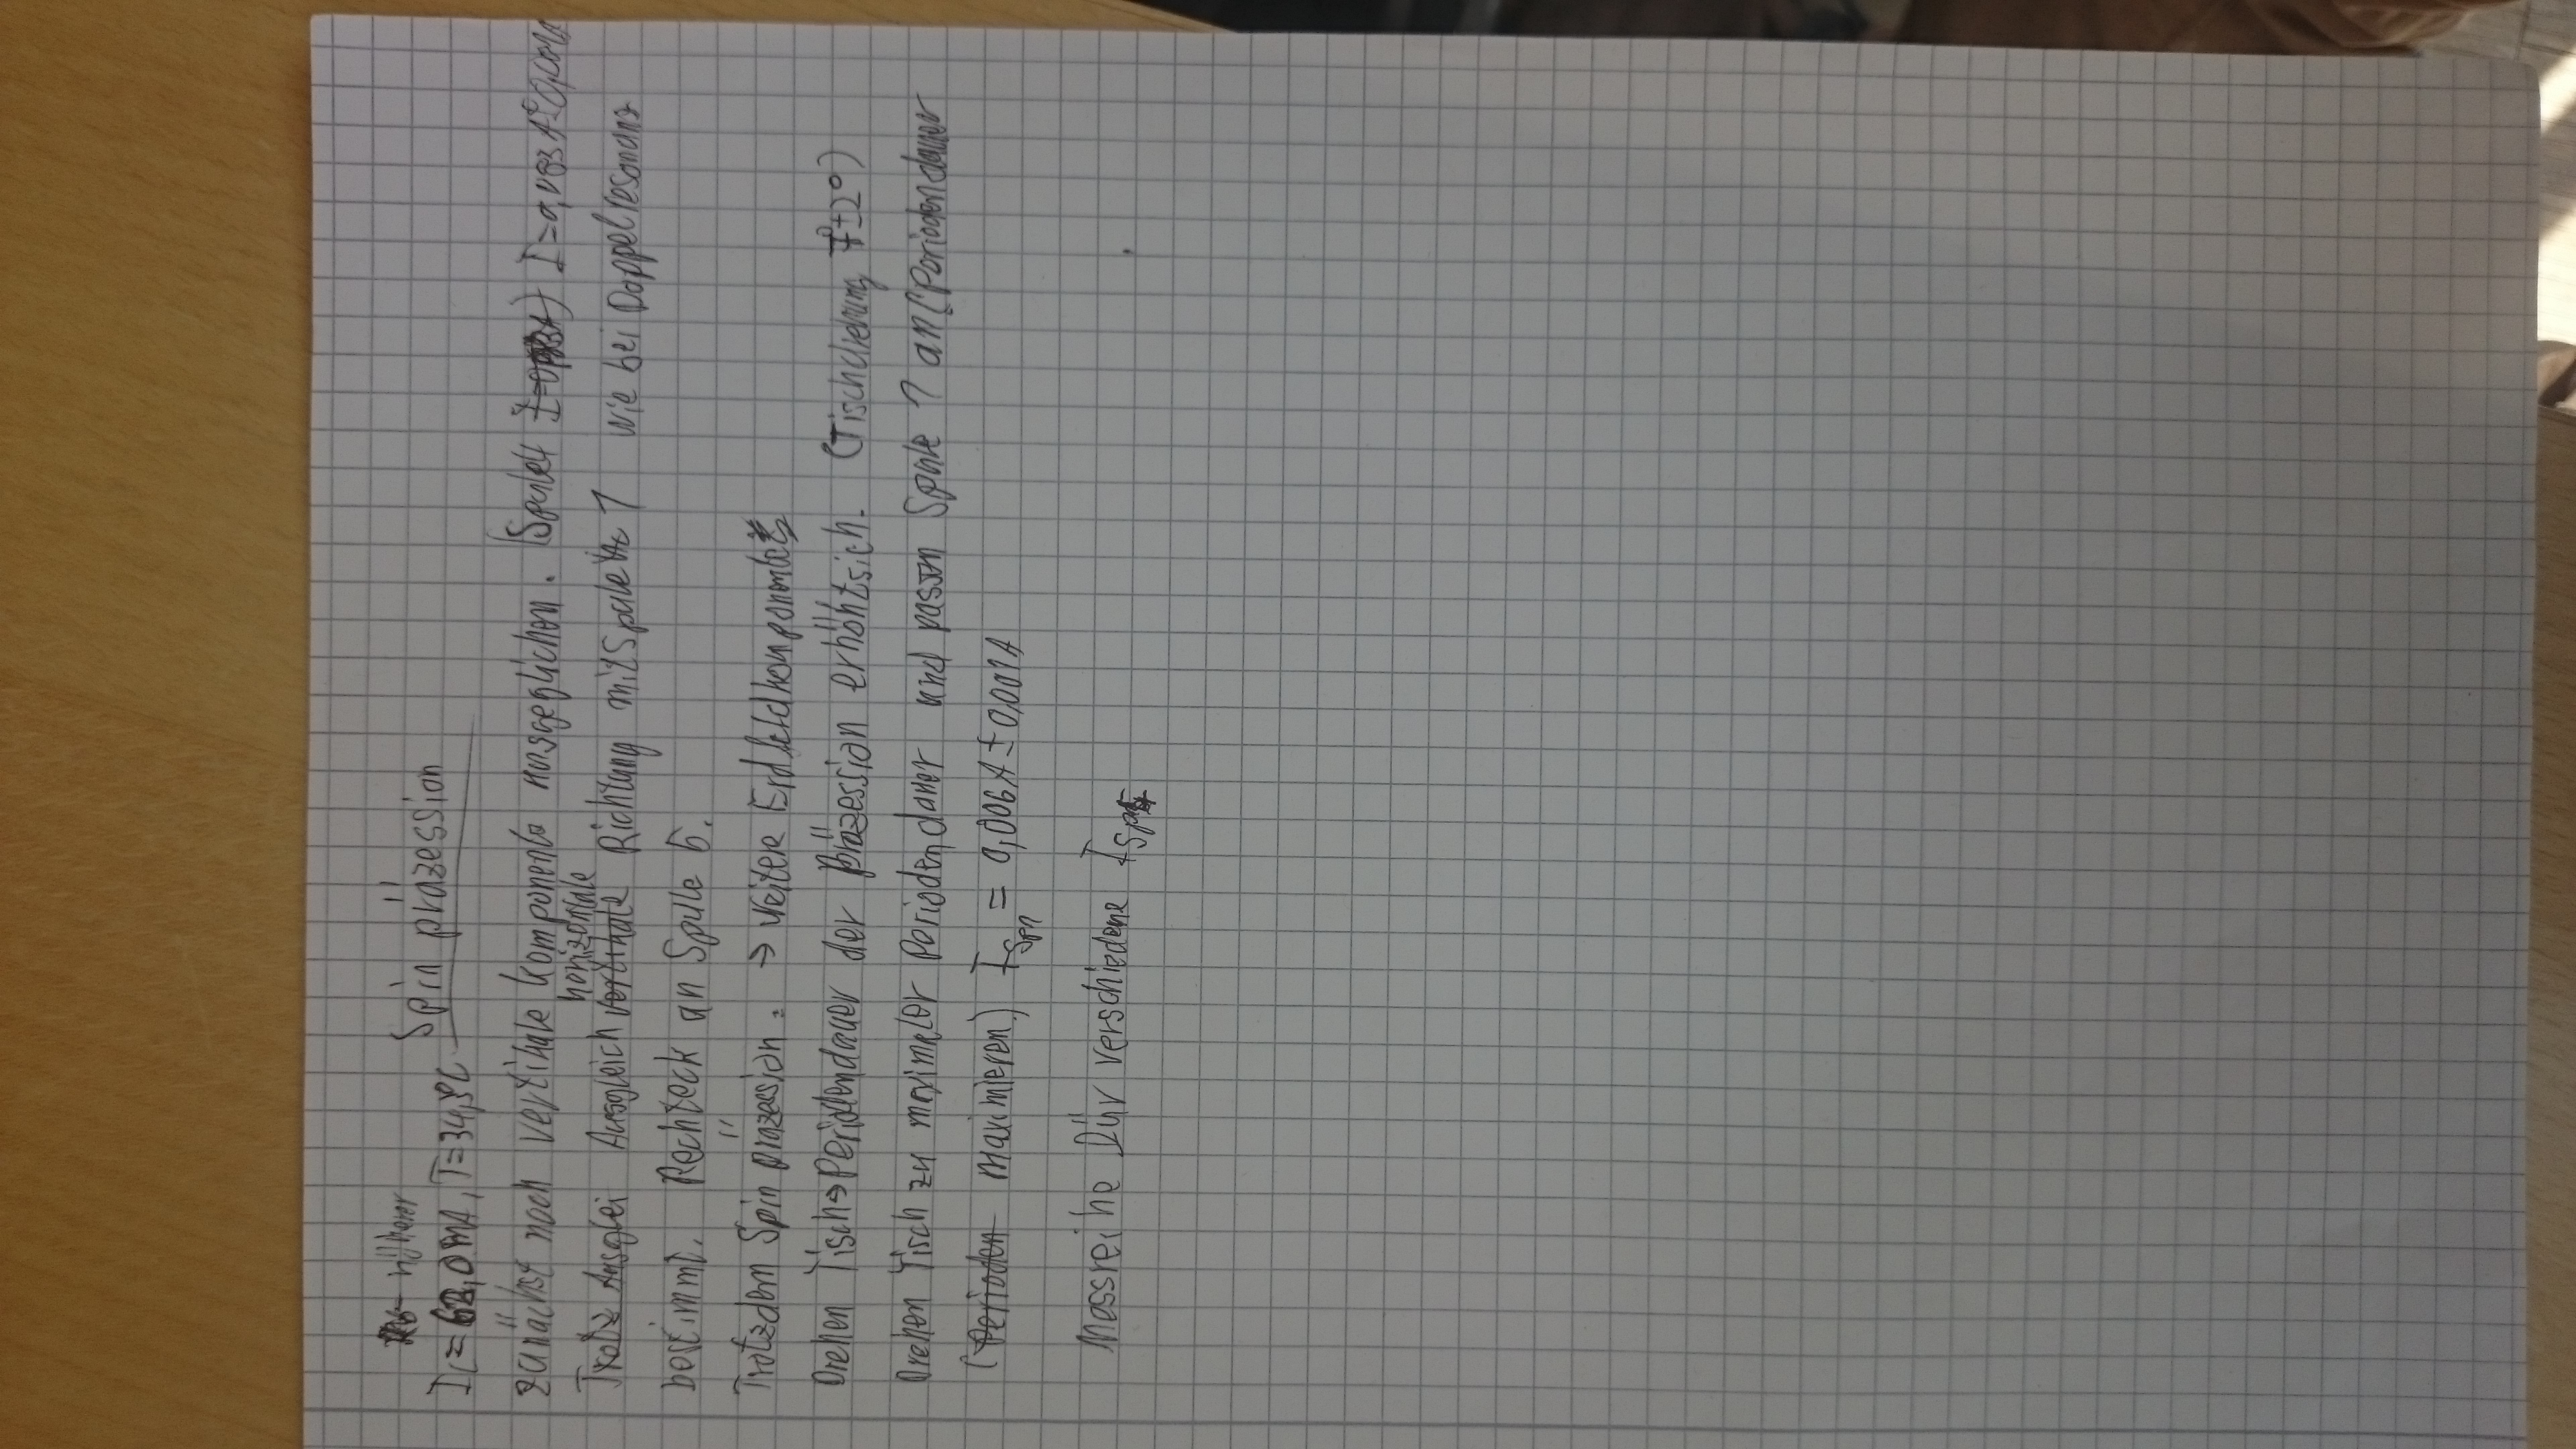 Spinpräzession
I_C = 62,0 mA, T=34,9°C
zunächst noch vertikale Komponente ausgeglichen. (Spule 4 I = 0,083 A ± 0,001 A
Ausgleich horizontale Richtung mit Spule 1 wie bei Doppelresonanz
bestimmt. Rechteck an Spule 5.
Trotzdem Spin präzession. → weitere Erdfeldkomponente
Drehen Tisch → Periodendauer der Präzession erhöht sich. (Tischdrehung 7° ± 2°)
Drehen Tisch zu maximaler Periodendauer und passen Spule 1 an (Periodendauer
maximieren.) I_Sp1 = 0,006 A ± 0,001 A
Messreihe für verschiedene I_Sp5